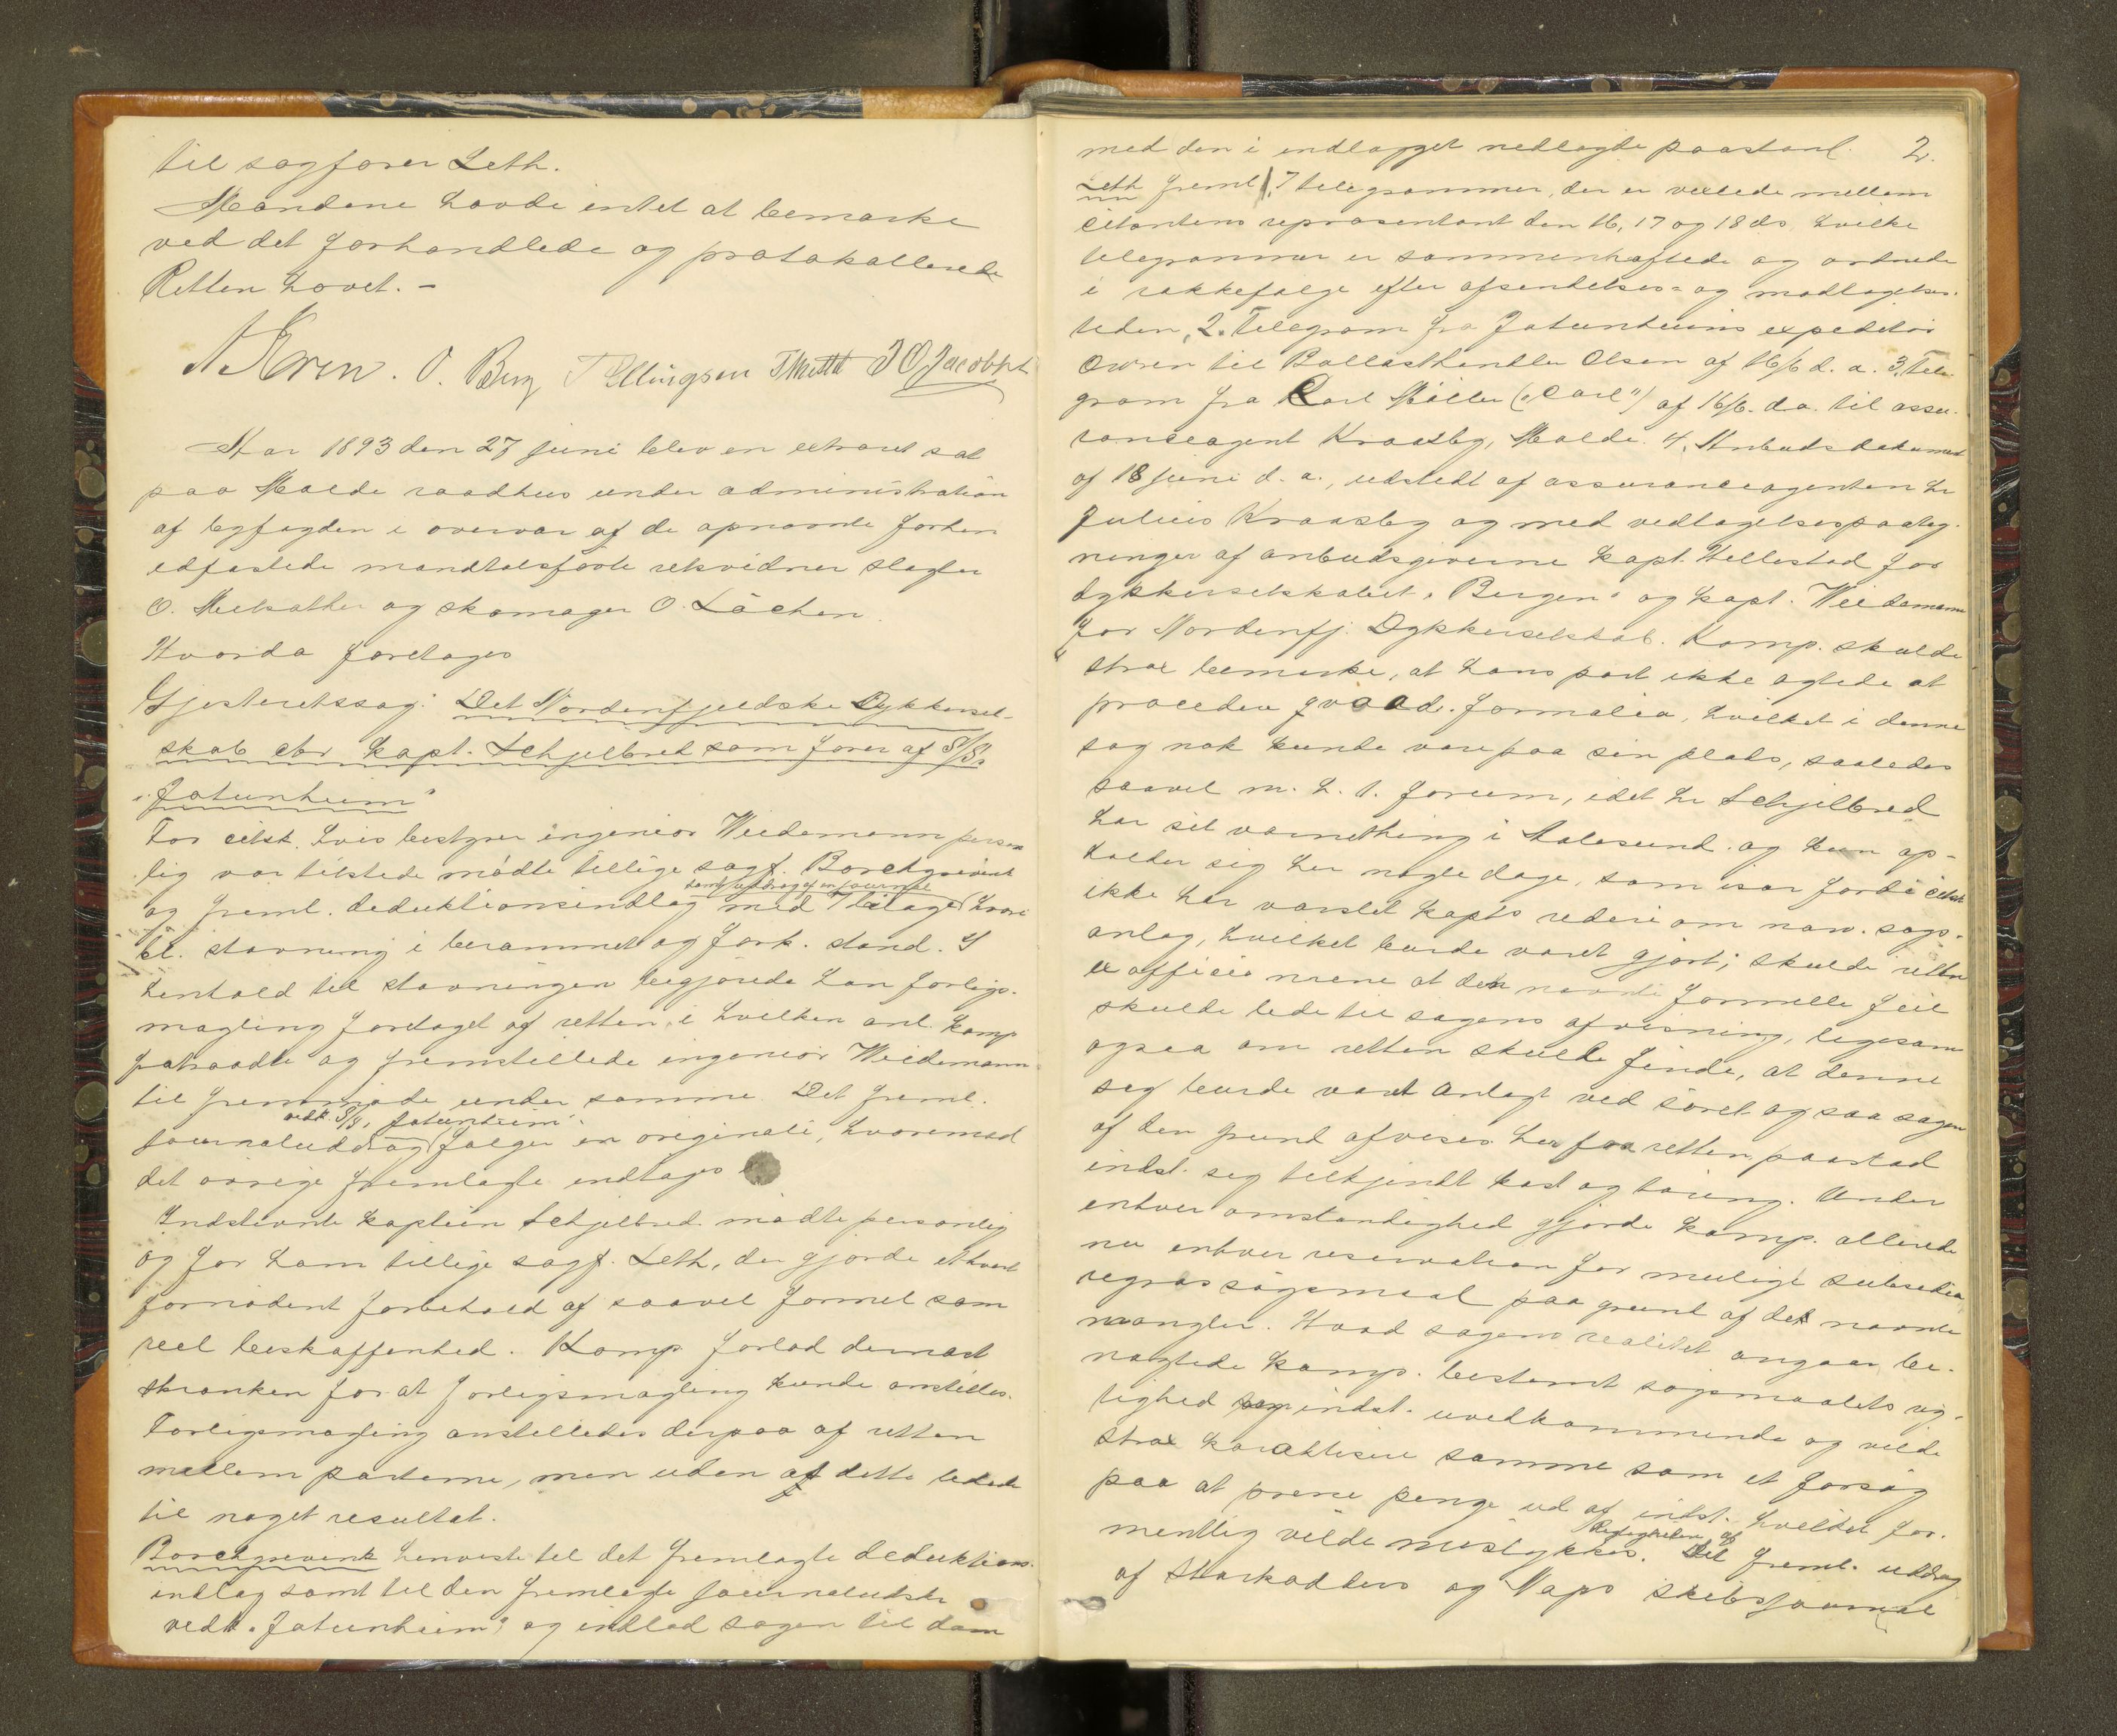 til sagfører Leth.
Mændene havde intet at bemærke
ved det forhandlede og protokollerede
Retten hævet. –
O. Berg T Ellingsen JOJacobsen
Aar 1893 den 27 juni blev en extraret sat
paa Molde raadhus under administration
af byfogden i overvær af de opnævnte forhen
edfæstede mandtalsførte retsvidner slagter
O. Melsæther og skomager O. Lächen.
Hvorda foretoges
Gjesteretssag: Det Nordenfjeldske Dykkersel-
skab ctr kapt. Schjelbred som fører af S/S.
"Jotunheim"
For citst. hvis bestyrer ingeniør Weedemann person
lig var tilstede mødte tillige sagf. Borchgrevink
samt uddrag af en journal
og freml. deduktionsindlæg med 7 bilage hvori
bl. stævning i berammet og fork. stand. I
henhold til stævningen begjærede han forligs-
mægling foretaget af retten, i hvilken anl. komp
fatraadte og fremstillede ingeniør Weedemann
til fremmøde under samme. Det freml.
vedk. S/S. "Jotunheim"
journaludd​rag følger en originali, hvoremod
det øvrige fremlagte indtages
Indstevnte kaptein Schjelbred mødte personlig
og for ham tillige sagf. Leth, der gjorde ethvert
fornødent forbehold af saavel formel som
reel beskaffenhed. Komp forlod dernæst
skranken for at forligsmægling kunde anstilles.
Forligsmægling anstilledes derpaa af retten
mellem parterne, men uden at dette ledede
til noget resultat.
Borchgrevink henviste til det fremlagte deduktions-
indlæg samt til den fremlagte journaludskr
vedk. "Jotunheim", og indlod sagen til dom
med den i indlægget nedlagte paastand. 2.
Leth freml. 1, 7 telegrammer, der er vexlede mellem
citantens repræsentant den 16, 17 og 18 ds, hvilke
telegrammer er sammenhæftede og ordnede
i rækkefølge efter afsendelses- og modtagelses-
tiden, 2. Telegram fra Jotunheims expeditør
Owren til Ballasthandler Olsen af 16/6 d. a. 3. Tele-
gram fra Carl Møller ("Carl") af 16/6. d.a. til assu-
ranceagent Kraasby, Molde. 4. Anbudsdokument
af 18 juni d. a., udstedt af assuranceagenten hr
Julius Kraasby og med vedtagelsespaateg-
ninger af anbudsgiverne kapt. Hellestad for
dykkerselskabet "Bergen" og kapt. Weedemann
for Nordenfj. Dykkerselskab. Komp. skulde
strax bemærke, at hans part ikke agtede at
procedere qvoad. formalia, hvilket i denne
sag nok kunde være paa sin plads, saaledes
saavel m. h. t. forum, idet hr Schjelbred
har sit værnething i Aalesund og kun op-
holder sig her nogle dage, som især fordi citst
ikke har varslet kapts rederi om nærv. sags-
anlæg, hvilket burde været gjort; skulde retten
ex officio mene at den nævnte formelle feil
skulde lede til sagens afvisning, ligesom
ogsaa om retten skulde finde, at denne
sag burde været anlagt ved søret og saa sagen
af den grund afvises her fra retten, paastod
indst. sig tilkjendt kost og tæring. Under
enhver omstændighed gjorde komp. allerede
nu enhver reservation for mulige subsidiære
regres søgsmaal paa grund af det nævnte
mangler. Hvad sagens realitet angaar, be-
nægtede komp. bestemt søgsmaalets rig-
tighed indst. uvedkommende og vilde
strax karaktisere samme som et forsøg
paa at presse penge ud af indst. hvilket for-
mentlig vilde mislykkes. Det freml. uddrag
Rigtigheden af
af Starkodders og Vaps skibsjournal